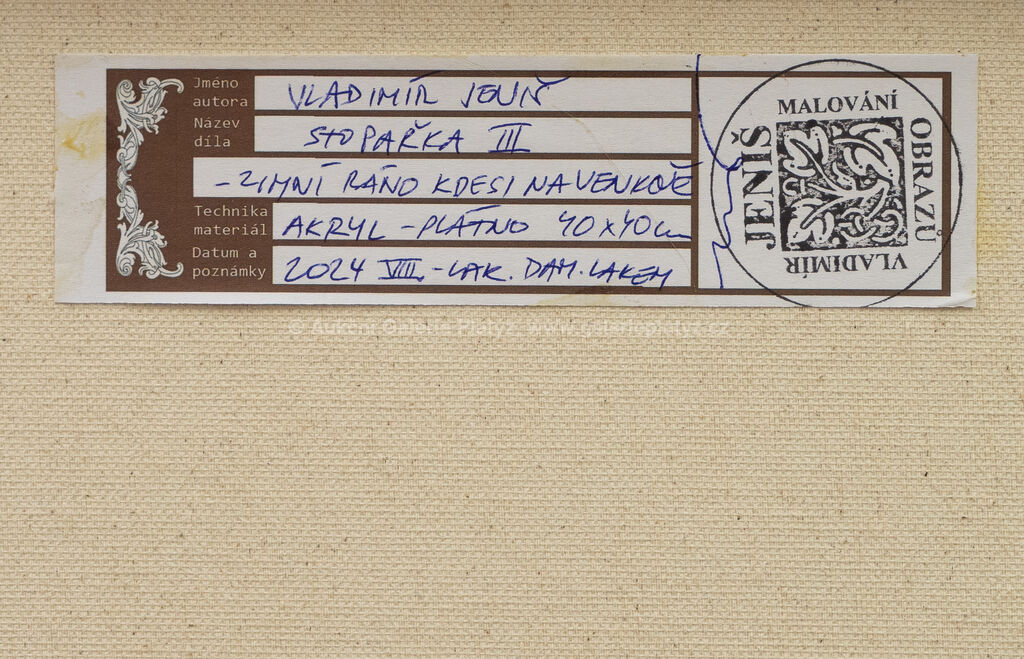 Jméno
autora
VLADIMÍR JENIŠ
Název
díla
STOPAŘKA III
-ZIMNÍ RÁNO KDESI NA VENKOVĚ
Technika
materiál
AKRYL - PLÁTNO 40x40cm
Datum a
poznámky
2024 VIII. - LAK. DAM. LAKEM
MALOVÁNÍ
OBRAZŮ
VLADIMÍR
JENIŠ
© Aukční Galerie Platýz, www.galerieplatyz.cz